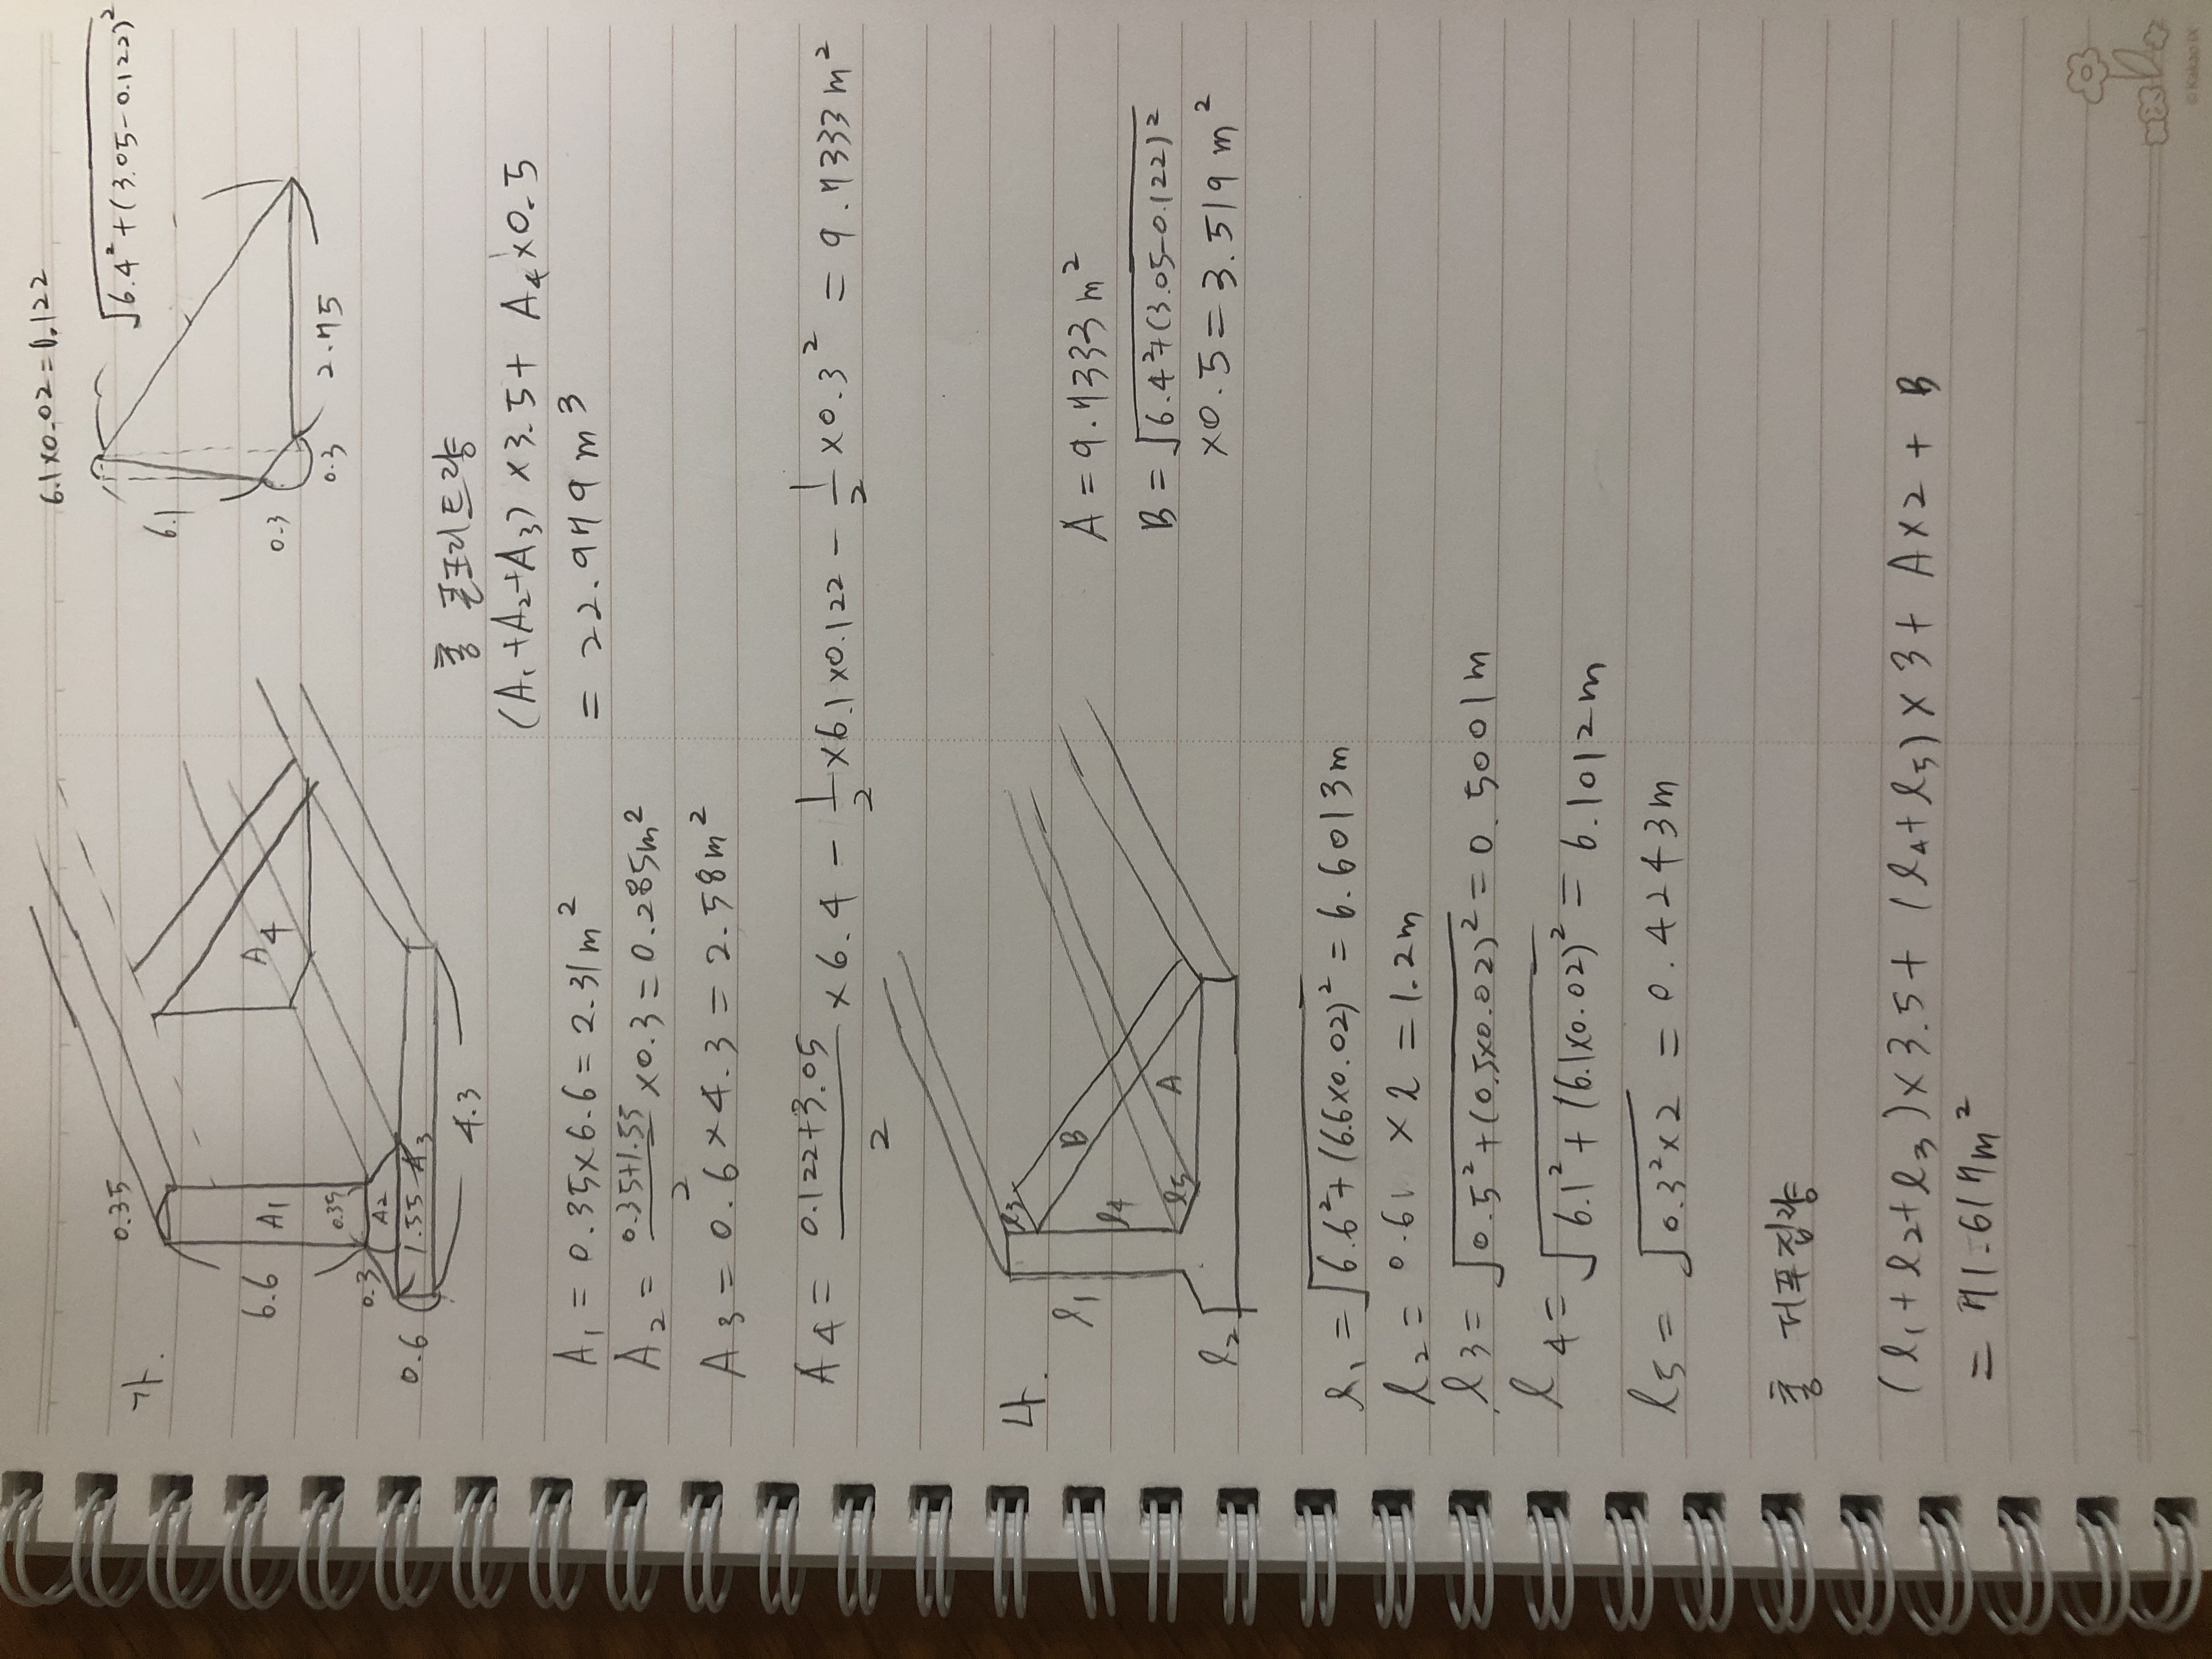 가.
0.35
6.6
A₁
0.35
0.3
A₂
1.55
A₃
0.6
4.3
A₄
6.1×0.02=0.122
√6.4²+(3.05-0.122)²
6.1
0.3
0.3
2.75
총 콘크리트량
(A₁+A₂+A₃)×3.5+ A₄×0.5
= 22.9779 m³
A₁ = 0.35×6.6 = 2.31m²
A₂ = (0.35+1.55)/2 ×0.3 = 0.285m²
A₃ = 0.6×4.3 = 2.58m²
A₄ = (0.122+3.05)/2 ×6.4 - 1/2 ×6.1×0.122 - 1/2 ×0.3² = 9.7333m²
4.
l₁
l₂
l₃
l₄
l₅
B
A
A = 9.7333m²
B = √6.4²+(3.05-0.122)²
×0.5 = 3.519m²
l₁ = √6.6²+(6.6×0.02)² = 6.6013m
l₂ = 0.6 × 2 = 1.2m
l₃ = √0.5²+(0.5×0.02)² = 0.5001m
l₄ = √6.1²+(6.1×0.02)² = 6.1012m
l₅ = √0.3²×2 = 0.4243m
총 거푸집량
(l₁+l₂+l₃)×3.5+(l₄+l₅)×3+A×2+B
= 71.617m²
© Kakao IX